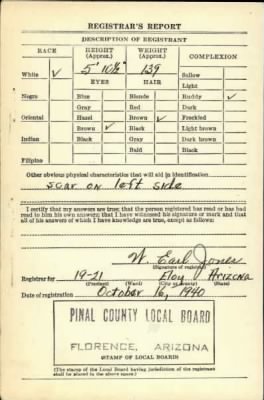 REGISTRAR'S REPORT
DESCRIPTION OF REGISTRANT
RACE HEIGHT (Approx.) WEIGHT (Approx.) COMPLEXION
White ✓ 5' 10½" 139 Sallow
EYES HAIR Light
Negro Blue Blonde Ruddy ✓
Gray Red Dark
Oriental Hazel Brown ✓ Freckled
Brown ✓ Black Light brown
Indian Black Gray Dark brown
Bald Black
Filipino
Other obvious physical characteristics that will aid in identification
scar on left side
I certify that my answers are true; that the person registered has read or has had
read to him his own answers; that I have witnessed his signature or mark and that
all of his answers of which I have knowledge are true, except as follows:
W. Earl Jones
(Signature of registrar)
Registrar for 19-21 Eloy Arizona
(Precinct) (Ward) (City or county) (State)
Date of registration October 16, 1940
PINAL COUNTY LOCAL BOARD
FLORENCE, ARIZONA
(STAMP OF LOCAL BOARD)
(The stamp of the Local Board having jurisdiction of the registrant
shall be placed in the above space.)